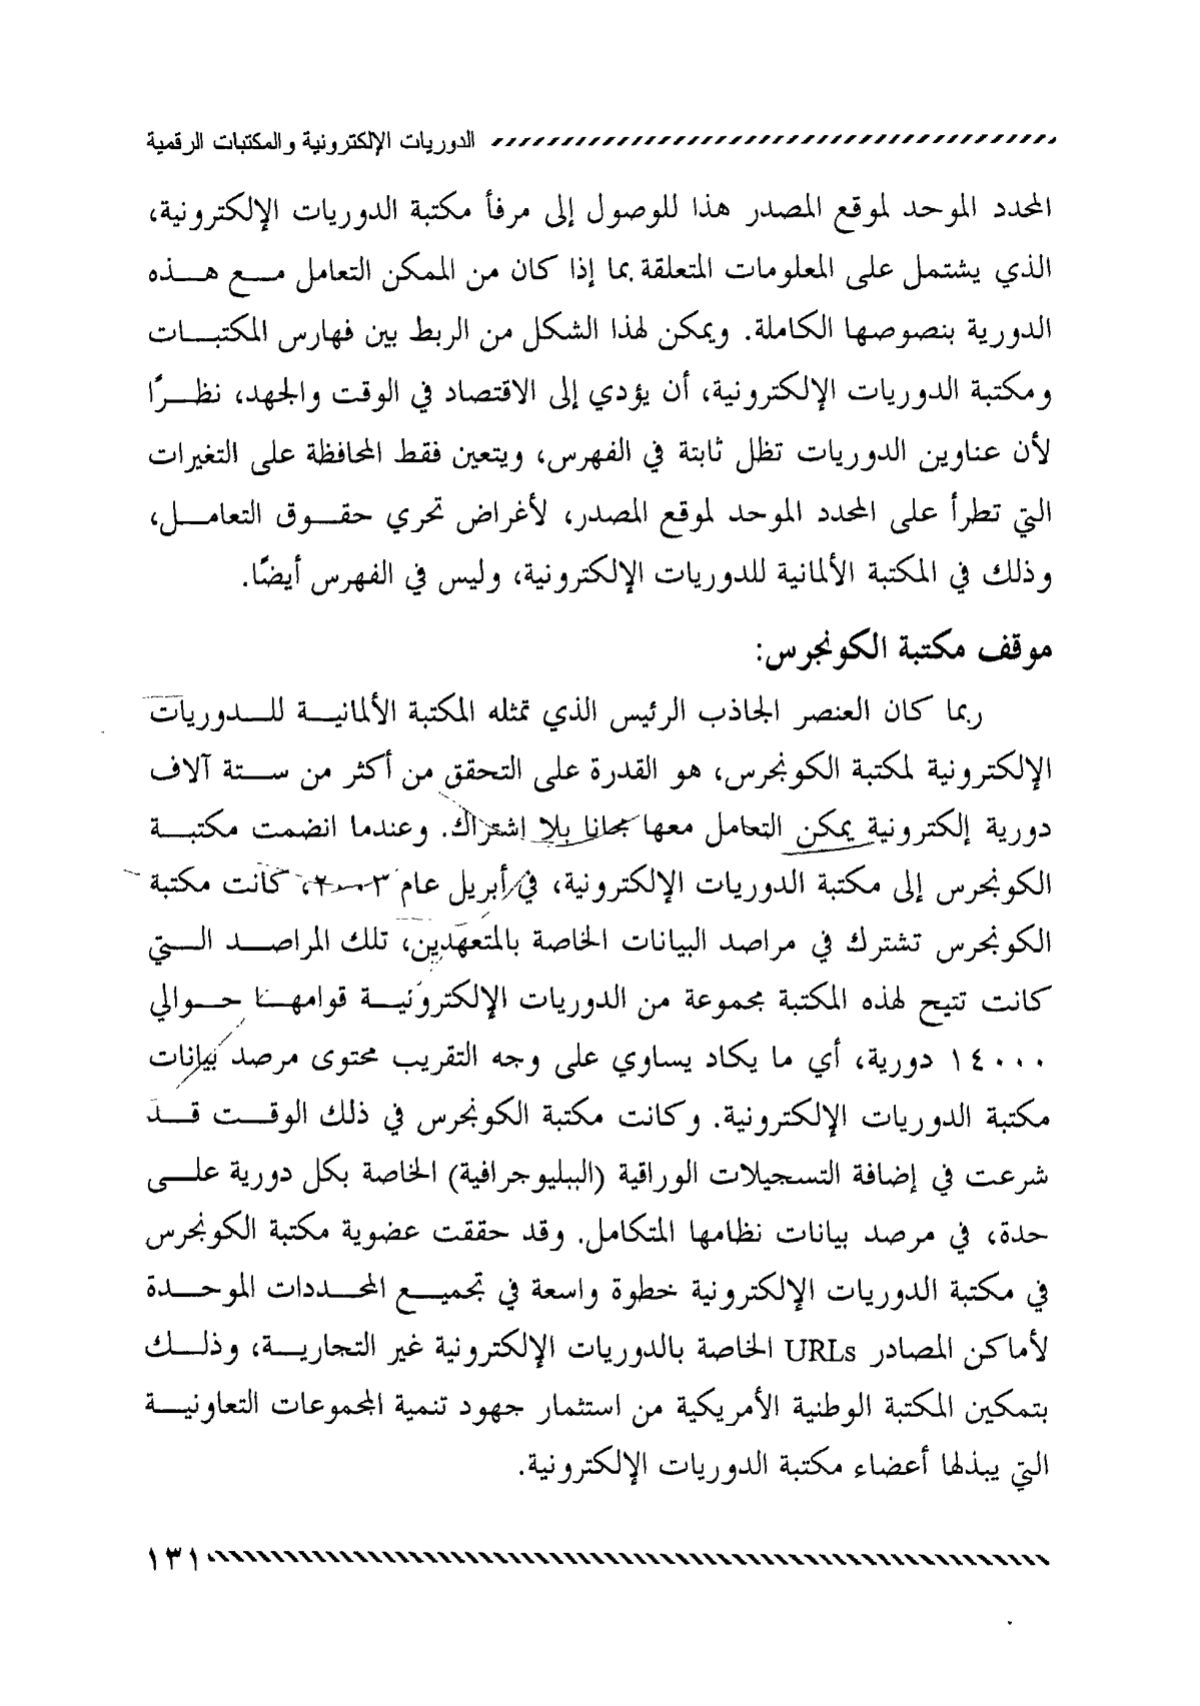 الدوريات الإلكترونية والمكتبات الرقمية
المحدد الموحد لموقع المصدر هذا للوصول إلى مرفأ مكتبة الدوريات الإلكترونية،
الذي يشتمل على المعلومات المتعلقة بما إذا كان من الممكن التعامل مع هذه
الدورية بنصوصها الكاملة. ويمكن لهذا الشكل من الربط بين فهارس المكتبات
ومكتبة الدوريات الإلكترونية، أن يؤدي إلى الاقتصاد في الوقت والجهد، نظرًا
لأن عناوين الدوريات تظل ثابتة في الفهرس، ويتعين فقط المحافظة على التغيرات
التي تطرأ على المحدد الموحد لموقع المصدر، لأغراض تحري حقوق التعامل،
وذلك في المكتبة الألمانية للدوريات الإلكترونية، وليس في الفهرس أيضًا.
موقف مكتبة الكونجرس:
ربما كان العنصر الجاذب الرئيس الذي تمثله المكتبة الألمانية للدوريات
الإلكترونية لمكتبة الكونجرس، هو القدرة على التحقق من أكثر من ستة آلاف
دورية إلكترونية يمكن التعامل معها مجانا بلا إشتراك. وعندما انضمت مكتبة
الكونجرس إلى مكتبة الدوريات الإلكترونية، في أبريل عام ٢٠٠٣، كانت مكتبة
الكونجرس تشترك في مراصد البيانات الخاصة بالمتعهدين، تلك المراصد التي
كانت تتيح لهذه المكتبة مجموعة من الدوريات الإلكترونية قوامها حوالي
١٤٠٠٠ دورية، أي ما يكاد يساوي على وجه التقريب محتوى مرصد بيانات
مكتبة الدوريات الإلكترونية. وكانت مكتبة الكونجرس في ذلك الوقت قد
شرعت في إضافة التسجيلات الوراقية (الببليوجرافية) الخاصة بكل دورية على
حدة، في مرصد بيانات نظامها المتكامل. وقد حققت عضوية مكتبة الكونجرس
في مكتبة الدوريات الإلكترونية خطوة واسعة في تجميع المحددات الموحدة
لأماكن المصادر URLs الخاصة بالدوريات الإلكترونية غير التجارية، وذلك
بتمكين المكتبة الوطنية الأمريكية من استثمار جهود تنمية المجموعات التعاونية
التي يبذلها أعضاء مكتبة الدوريات الإلكترونية.
١٣١